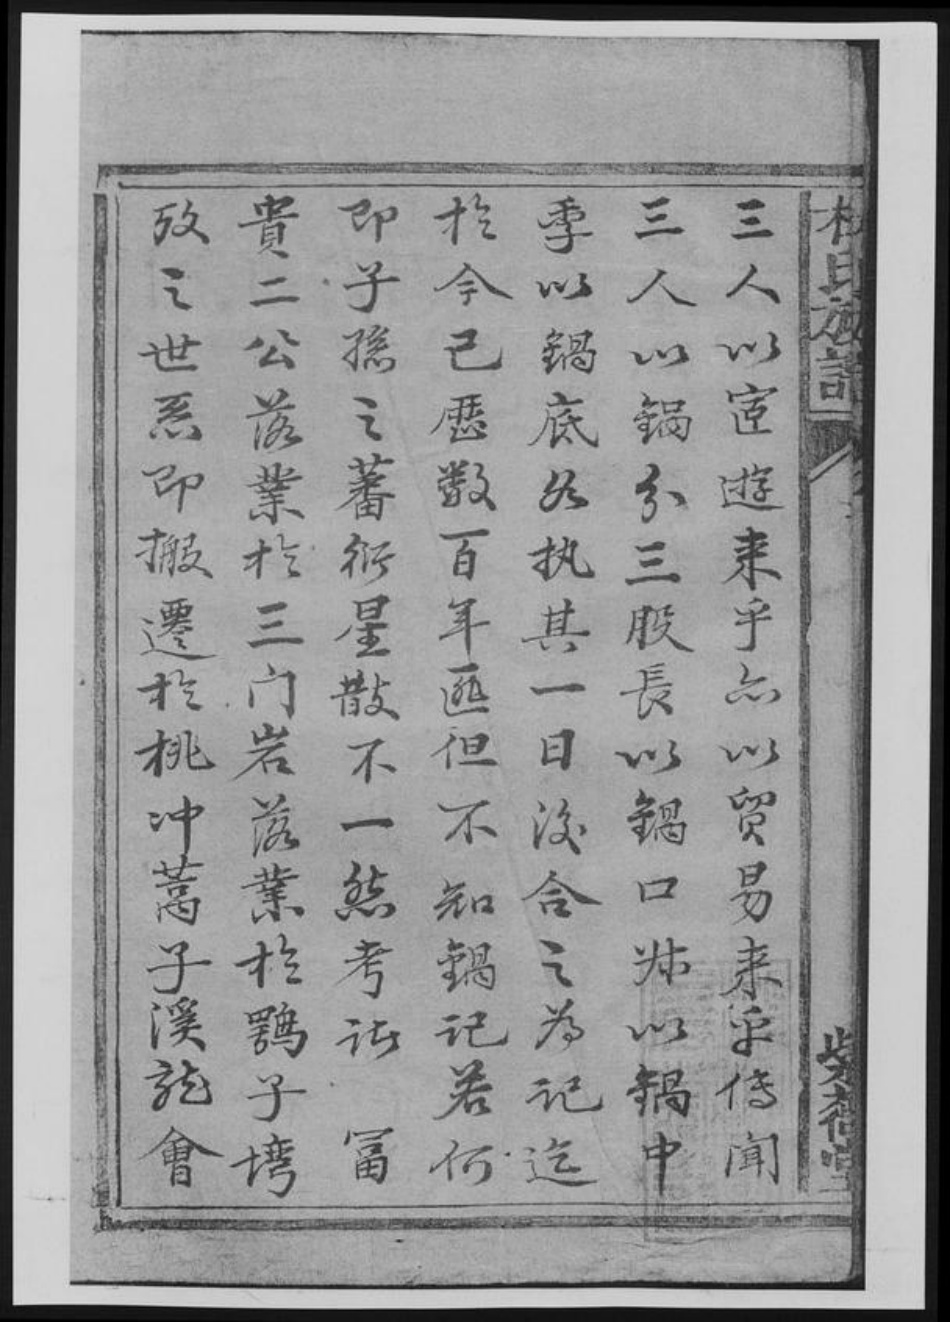 氏族譜
三人以宦遊来乎亦以貿易来乎傳聞
三人以鍋分三股長以鍋口㳤以鍋中
季以鍋底各执其一日後合之為記迄
於今已歷数百年匪但不知鍋記若何
即子孫之蕃衍星散不一然考諸 冨
貴二公落業於三门岩落業於鶚子塆
攷之世系即搬遷於桃冲蒿子溪龍會